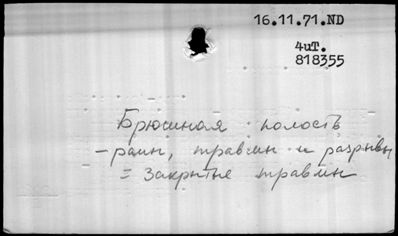 16.11.71.ND
4иТ.
818355
Брюшная полость
- ранн, травмы и разрывы
= закрытые травмы